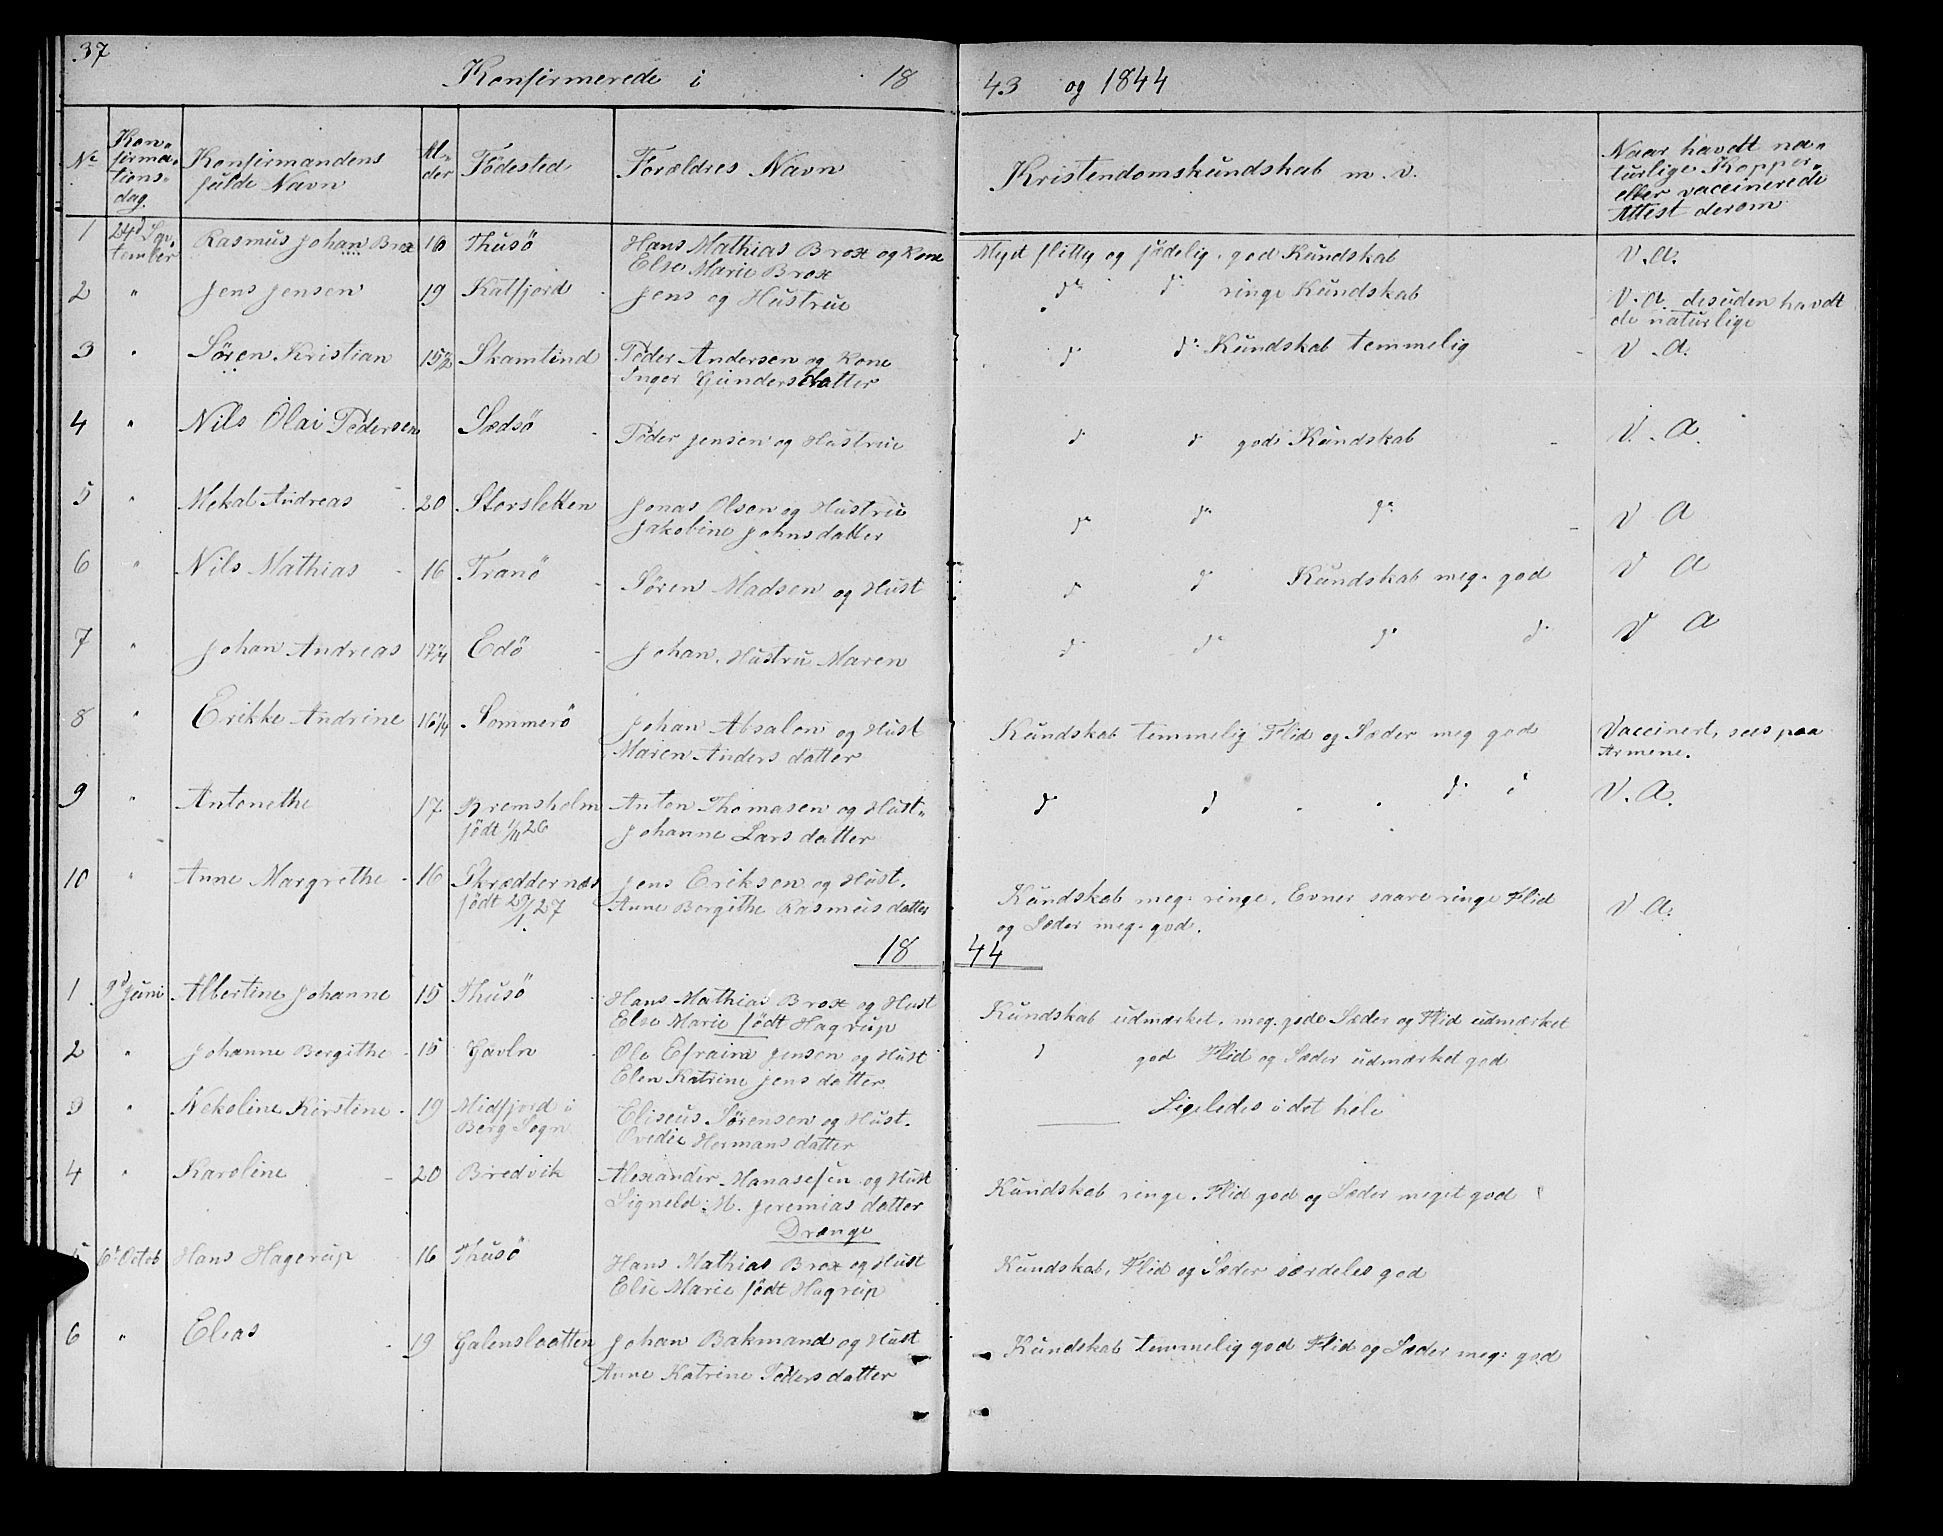 37
Konfirmerede i 18 43 og 1844
No
Kon-
firma-
tions-
dag.
Konfirmandens
fulde Navn
Al-
der
Födested
Forældres Navn
Kristendomskundskab m. v.
Naar havdt na-
turlige Kopper
eller vaccinerede
Attest derom
1 24d Sep- Rasmus Johan Brox 16 Thusö Hans Mathias Brox og Kone Meget flittig og sædelig. god Kundskab V. A.
tember Else Marie Brox
2 " Jens Jensen 19 Katfjord Jens og Hustrue do do ringe Kundskab V. A desuden havdt
de naturlige
3 " Sören Kristian 15½ Skamtind Peder Andersen og Kone d d: Kundskab temmelig V. A.
Inger Gundersdatter
4 " Nils Olai Pedersen Sædsö Peder Jensen og Hustrue d d god Kundskab V. A.
5 " Mekal Andreas 20 Storsletten Jonas Olsen og Hustrue do do do V A
Jakobine Johnsdatter
6 " Nils Mathias 16 Tranö Sören Madsen og Hust d d Kundskab meg. god V A
7 " Johan Andreas 17¼ Edö Johan. Hustru Maren d do do d V A
8 " Erikke Andrine 16¼ Sommerö Johan Absalon og Hust Kundskab temmelig Flid og Sæder meg god Vaccinert, sees paa
Maren Anders datter Armene.
9 " Antonethe 17 Bremsholm Anton Thomasen og Hust- d d d d V. A.
födt 1/11 26 Johanne Lars datter
10 " Anne Margrethe 16 Skræddernæs Jens Eriksen og Hust. Kundskab meg. ringe. Evner saare ringe Flid V A.
födt 29/1 27 Anne Bergithe Rasmus datter og Sæder meg. god.
18 44
1 9d Juni Albertine Johanne 15 Thusö Hans Mathias Brox og Hust Kundskab udmærket. meg. gode Sæder og Flid udmærket
Else Marie födt Hagrup
2 " Johanne Bergithe 15 Gavln Ole Efraim Jensen og Hust d god Flid og Sæder udmærket god
Elen Katrine Jens datter
3 " Nekoline Kirstine 19 Midfjord i Eliseus Sørensen og Hust. Ligeledes i det hele
Berg Sogn Ovedie Hermans datter
4 " Karoline 20 Bredvik Alexander Hanasesen og Hust Kundskab ringe. Flid god og Sæder meget god
Signeld: M. Jeremias datter
Drænge
5 6d Octob Hans Hagerup 16 Thusö Hans Mathias Brox og Hust Kundskab, Flid og Sæder særdeles god
Else Marie födt Hagrup
6 " Elias 19 Galenslaatten Johan Bakmand og Hust Kundskab temmelig god Flid og Sæder meg: god
Anne Katrine Peders datter